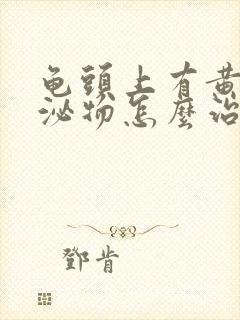 龟頭上有黄
泌物怎麼治
鄧肯